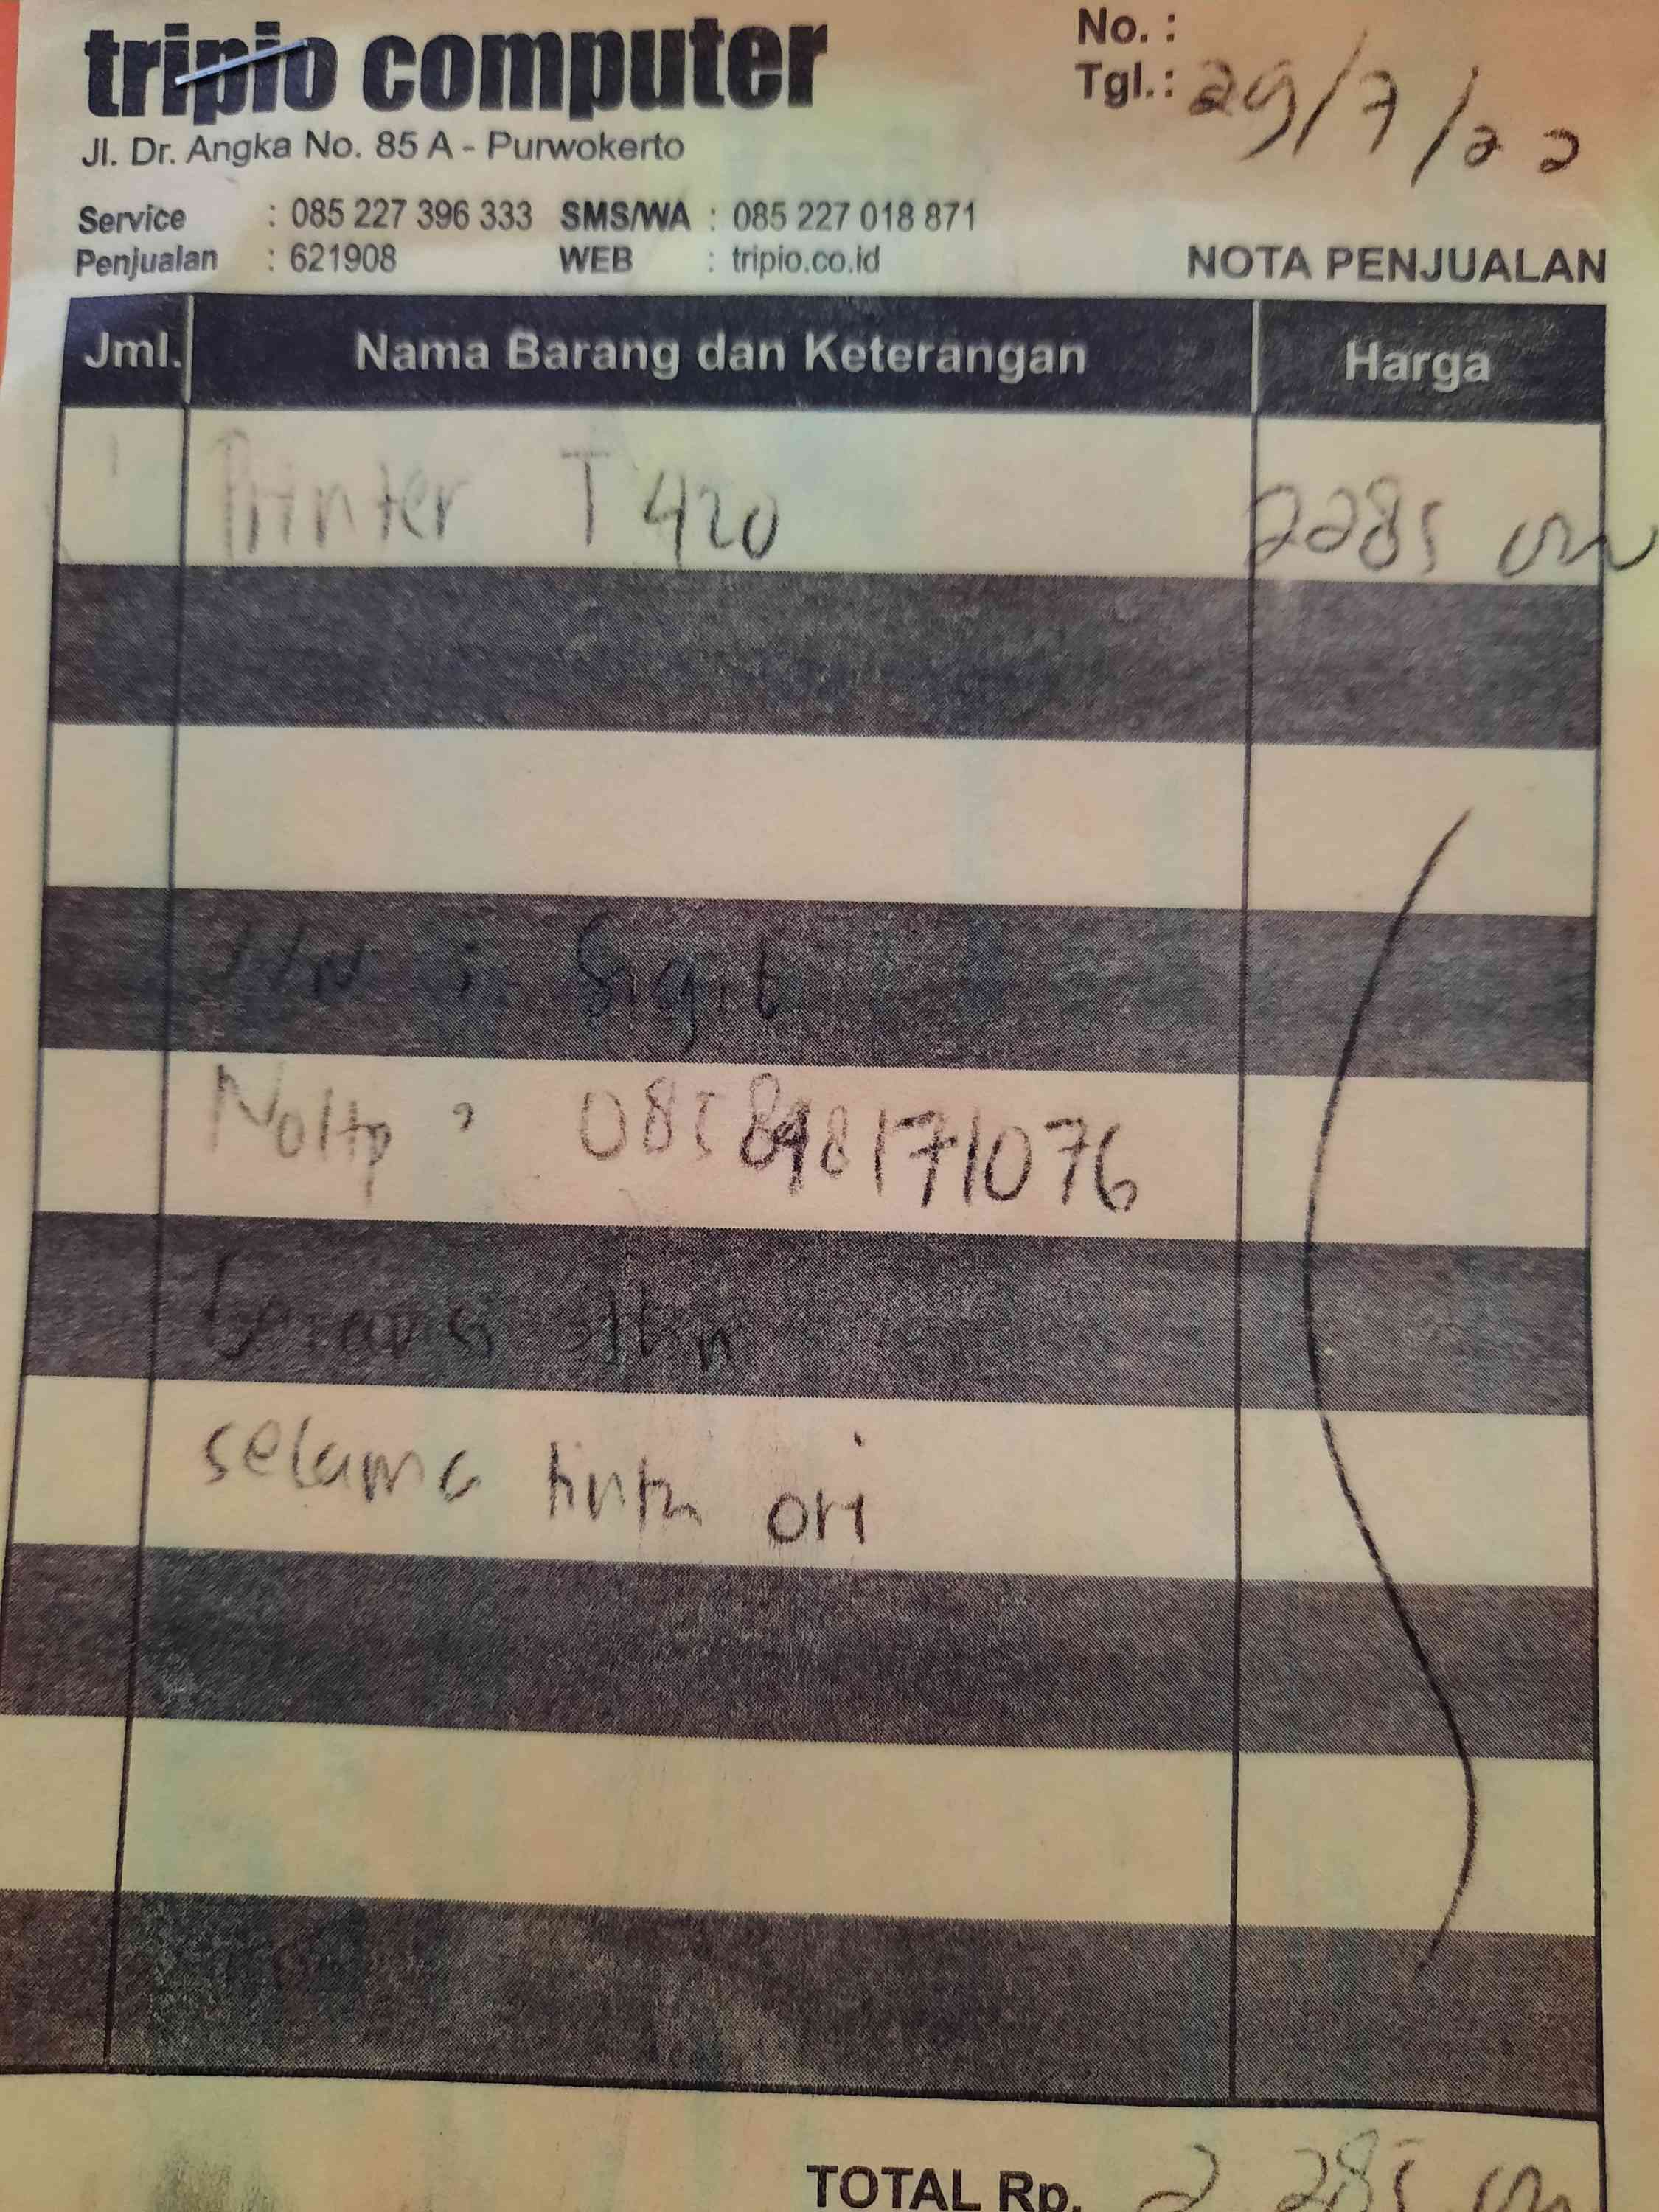 tripio computer
No. :
Tgl.: 29/7/22
Jl. Dr. Angka No. 85 A - Purwokerto
Service : 085 227 396 333 SMS/WA : 085 227 018 871
Penjualan : 621908 WEB : tripio.co.id
NOTA PENJUALAN
Jml. Nama Barang dan Keterangan Harga
1 Printer T420 2285
: Sigit
No Hp : 085
Garansi
selama tinta ori
TOTAL Rp. 2.285